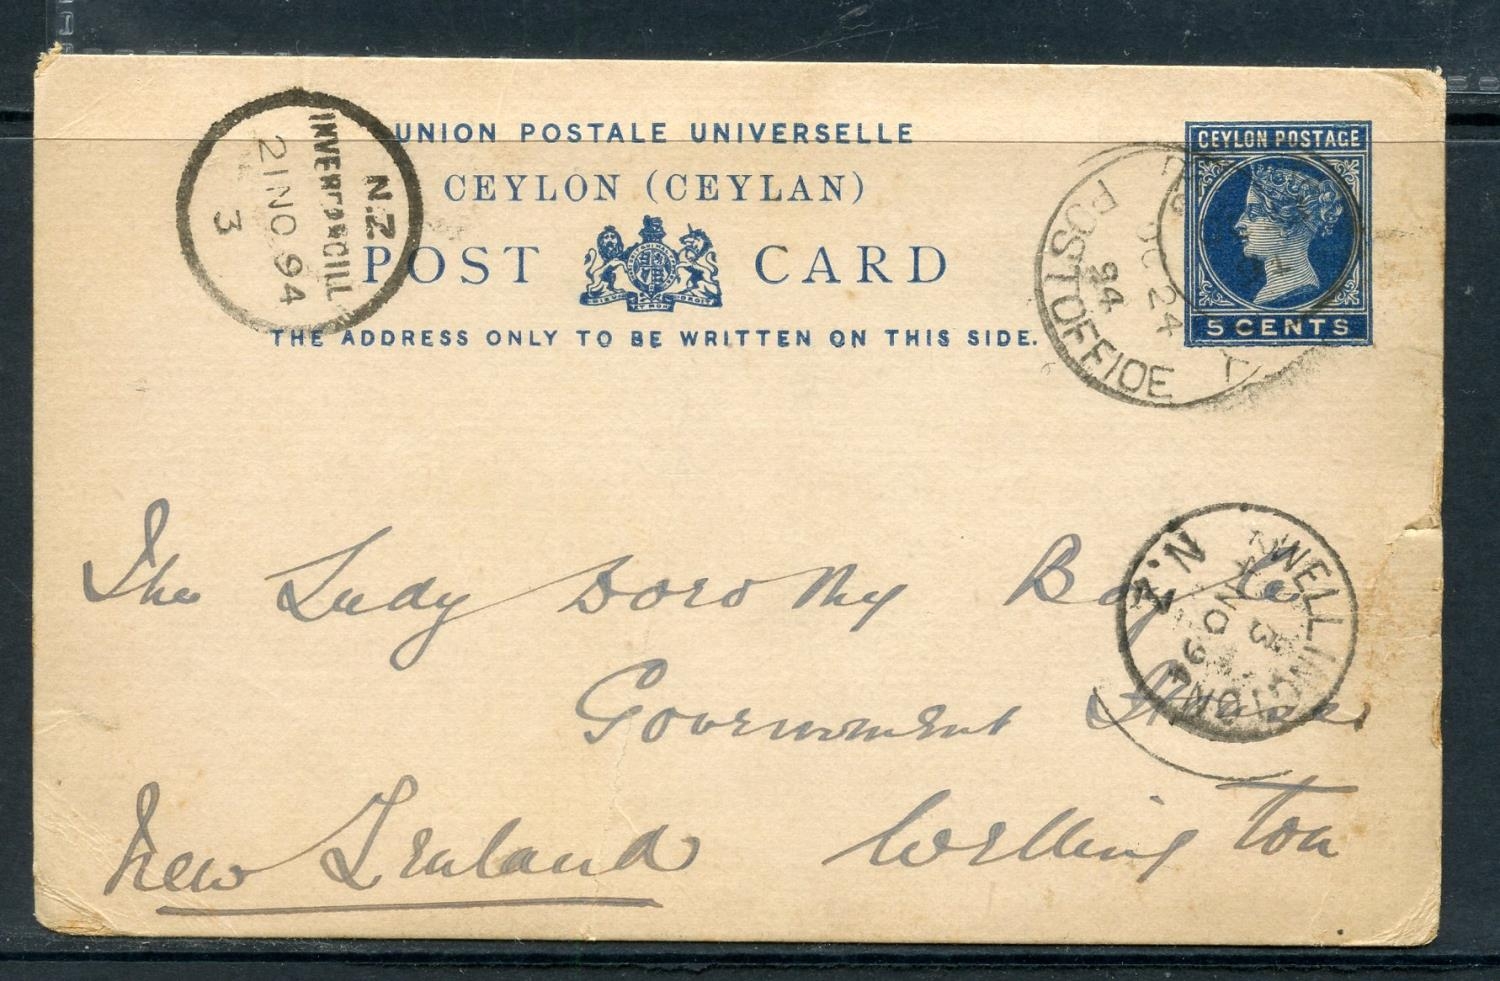 UNION POSTALE UNIVERSELLE
CEYLON (CEYLAN)
POST CARD
THE ADDRESS ONLY TO BE WRITTEN ON THIS SIDE.
CEYLON POSTAGE
5 CENTS
INVERCARGILL
N.Z
21 NO. 94
3
POST OFFICE
OC 24
94
WELLINGTON
N.Z
NO
94
The Lady Dorothy Boyle
Government House
Wellington
New Zealand